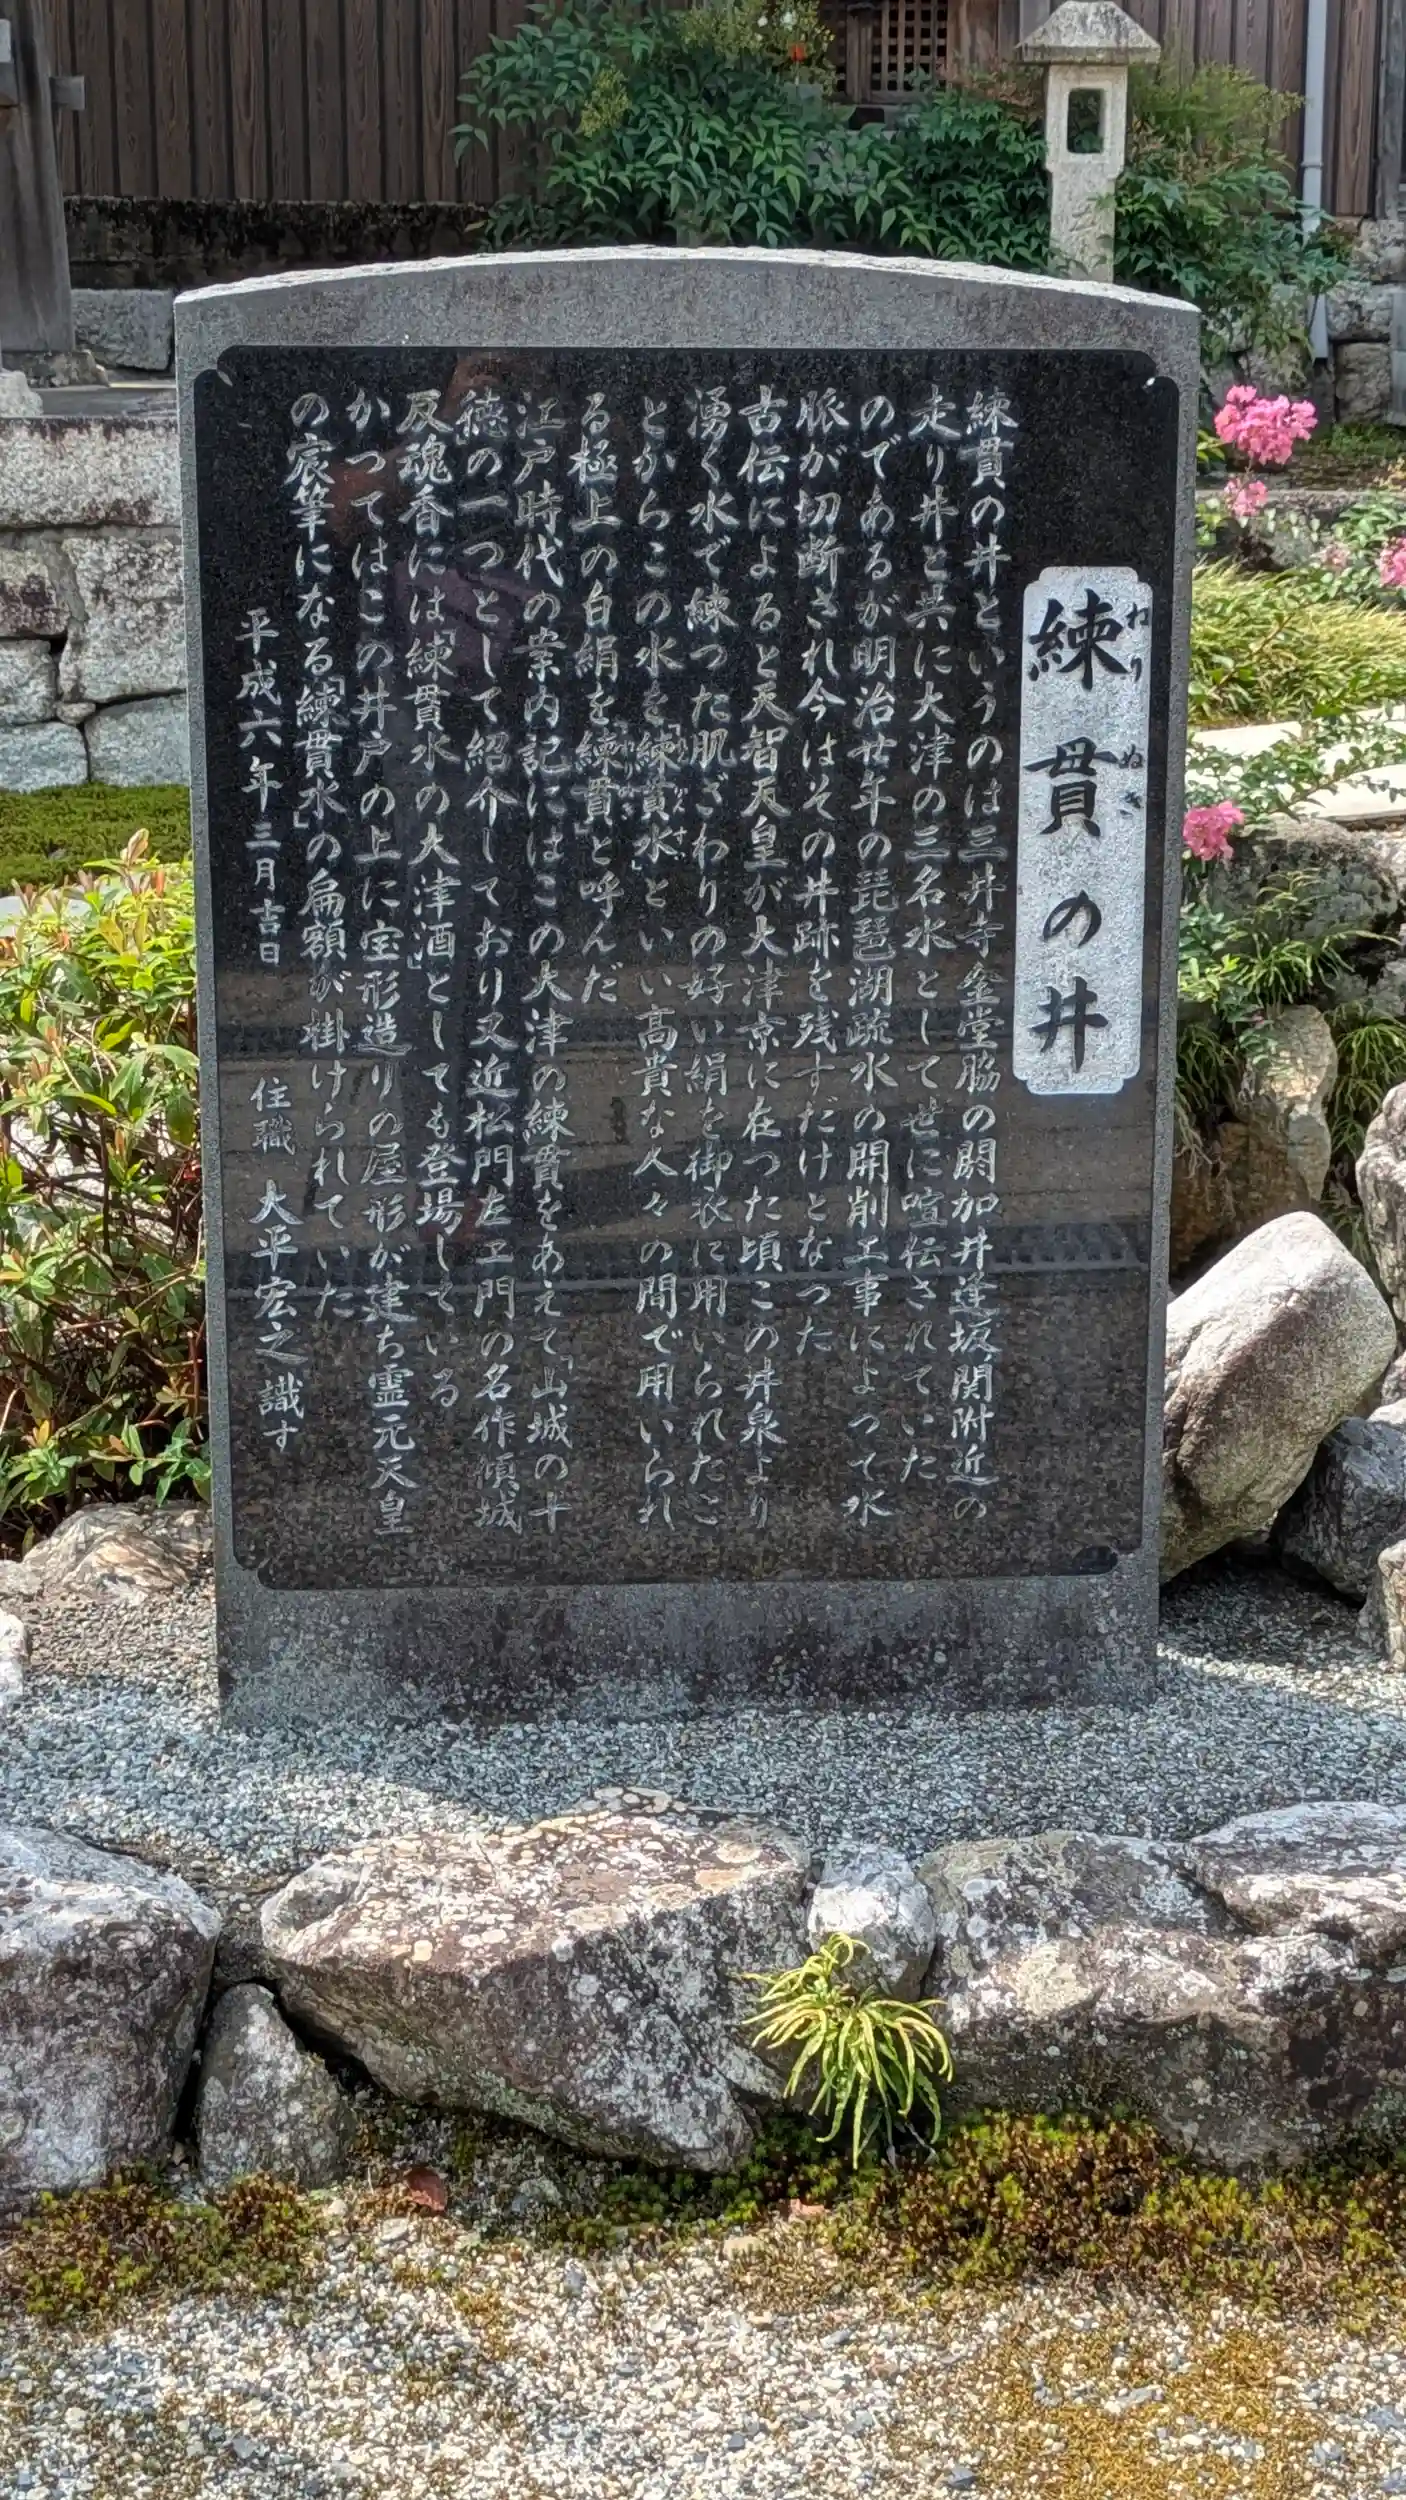 練貫の井
ねりぬき
練貫の井というのは三井寺金堂脇の閼加井逢坂関附近の
走り井と共に大津の三名水として世に喧伝されていた
のであるが明治廿年の琵琶湖疏水の開削工事によって水
脈が切断され今はその井跡を残すだけとなった
古伝によると天智天皇が大津京に在った頃この井泉より
湧く水で練った肌ざわりの好い絹を御衣に用いられたこ
とからこの水を「練貫水」といい高貴な人々の間で用いられ
る極上の白絹を「練貫」と呼んだ
江戸時代の案内記にはこの大津の練貫をあえて「山城の十
徳」の一つとして紹介しており又近松門左エ門の名作傾城
反魂香には「練貫水の大津酒」としても登場している
かってはこの井戸の上に宝形造りの屋形が建ち霊元天皇
の宸筆になる「練貫水」の扁額が掛けられていた
平成六年三月吉日 住職 大平宏之識す